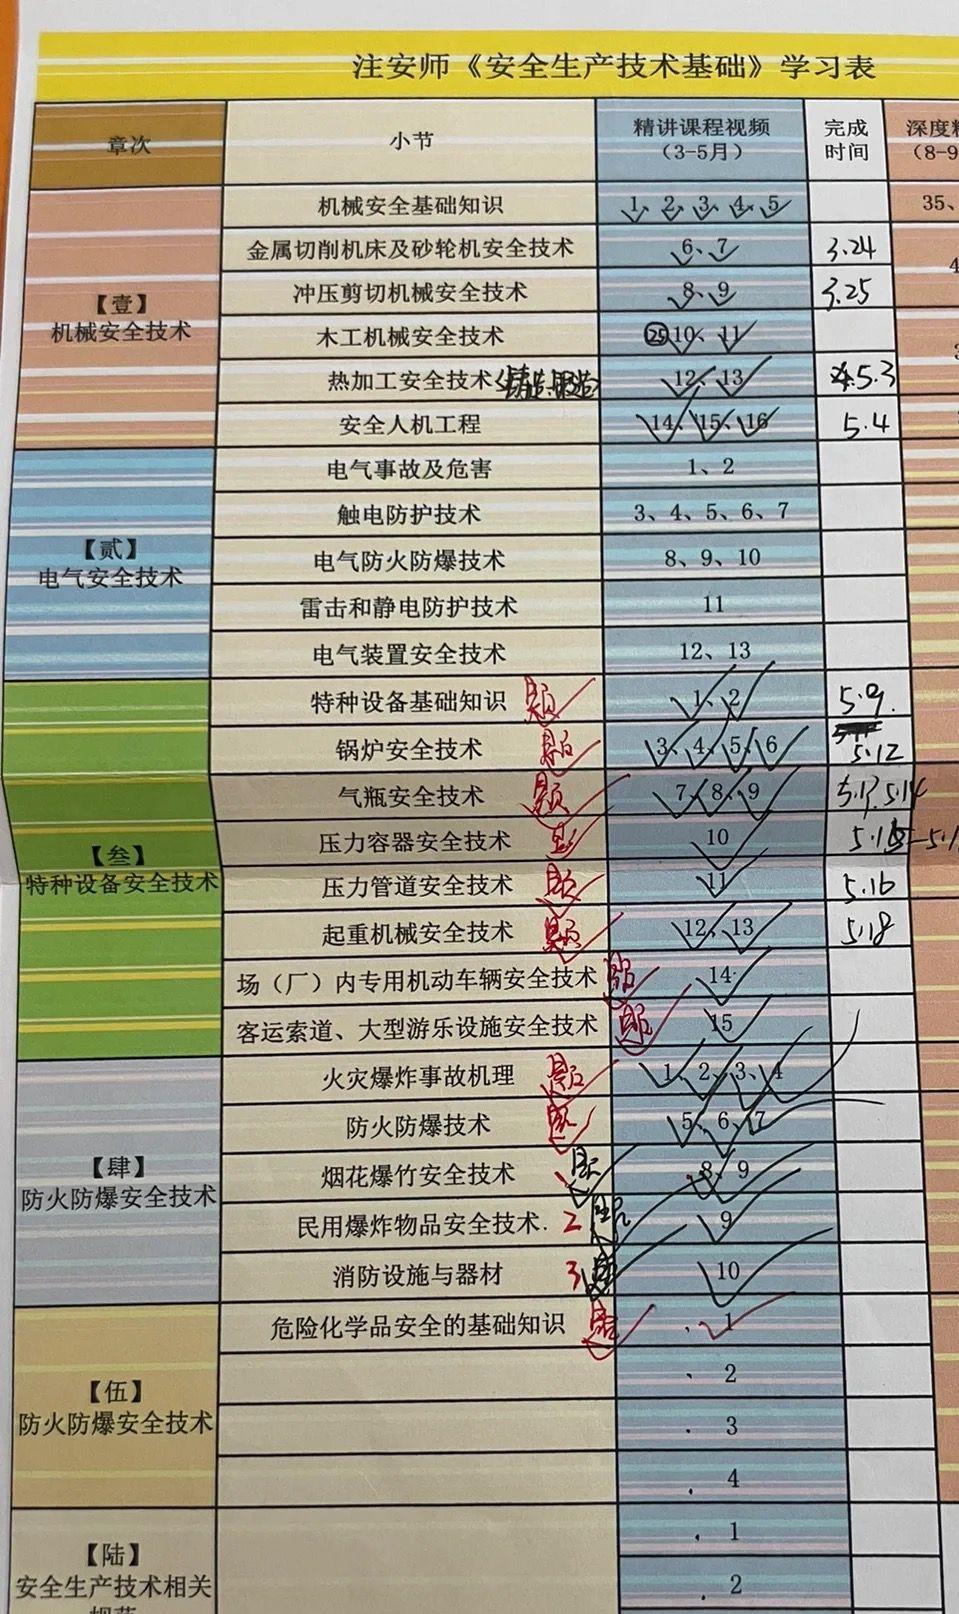 注安师《安全生产技术基础》学习表
章次 小节 精讲课程视频 完成 深度
（3-5月） 时间 （8-9
【壹】
机械安全技术
机械安全基础知识 1、2、3、4、5 35、
金属切削机床及砂轮机安全技术 6、7 3.24
冲压剪切机械安全技术 8、9 3.25
木工机械安全技术 25 10、11
热加工安全技术 12、13 5.3
安全人机工程 14、15、16 5.4
【贰】
电气安全技术
电气事故及危害 1、2
触电防护技术 3、4、5、6、7
电气防火防爆技术 8、9、10
雷击和静电防护技术 11
电气装置安全技术 12、13
【叁】
特种设备安全技术
特种设备基础知识 题 1、2 5.9.
锅炉安全技术 题 3、4、5、6 5.12
气瓶安全技术 题 7、8、9 5.14
压力容器安全技术 10
压力管道安全技术 题 11 5.16
起重机械安全技术 题 12、13 5.18
场（厂）内专用机动车辆安全技术 题 14
客运索道、大型游乐设施安全技术 题 15
【肆】
防火防爆安全技术
火灾爆炸事故机理 题 1、2、3、4
防火防爆技术 题 5、6、7
烟花爆竹安全技术 8、9
民用爆炸物品安全技术. 2 9
消防设施与器材 3 10
【伍】
防火防爆安全技术
危险化学品安全的基础知识 题 1
2
3
4
【陆】
安全生产技术相关
1
2